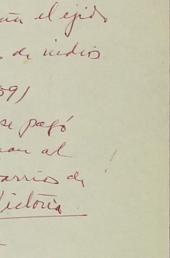 el ejido
de indios
891
se pagó
al !
barrios de
Victoria